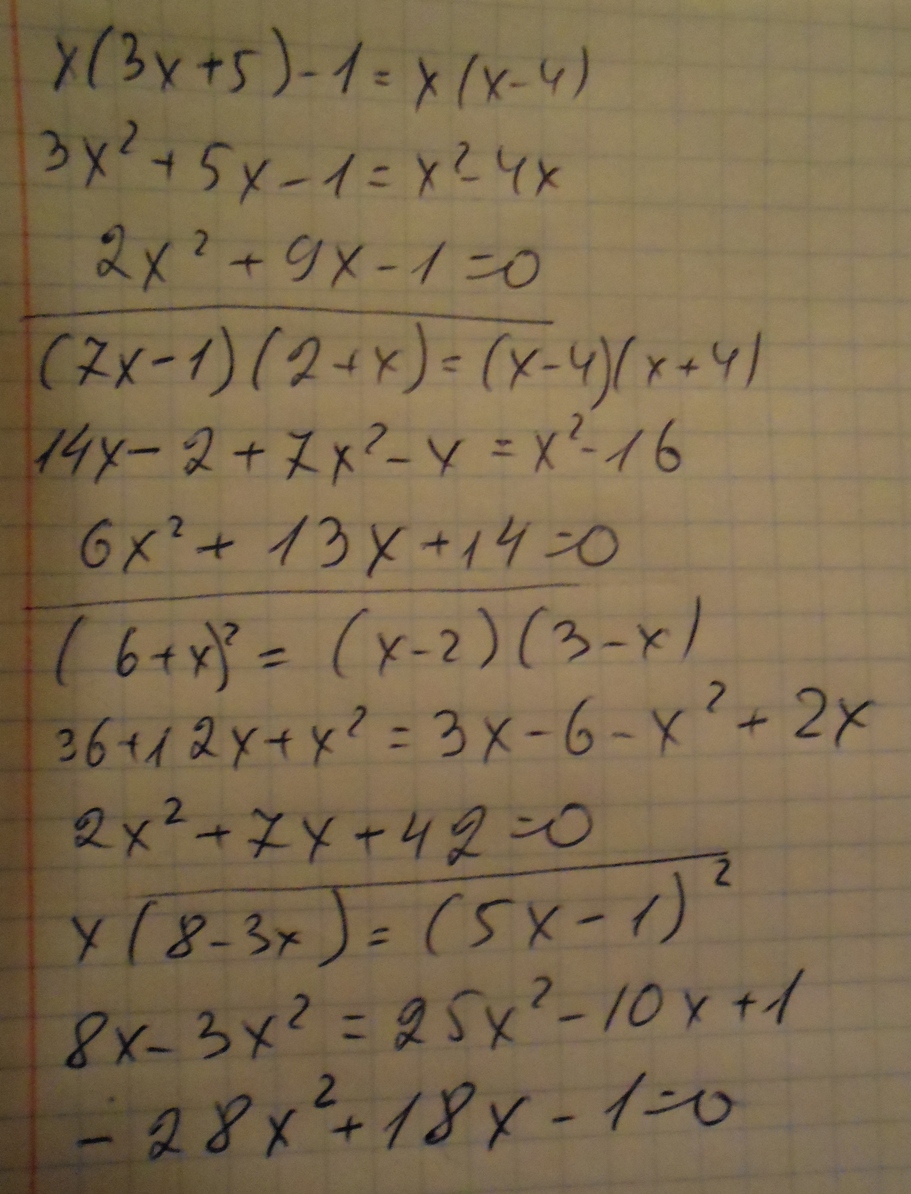 x(3x+5)-1=x(x-4)
3x²+5x-1=x²-4x
2x²+9x-1=0
(7x-1)(2+x)=(x-4)(x+4)
14x-2+7x²-x=x²-16
6x²+13x+14=0
(6+x)²=(x-2)(3-x)
36+12x+x²=3x-6-x²+2x
2x²+7x+42=0
x(8-3x)=(5x-1)²
8x-3x²=25x²-10x+1
-28x²+18x-1=0